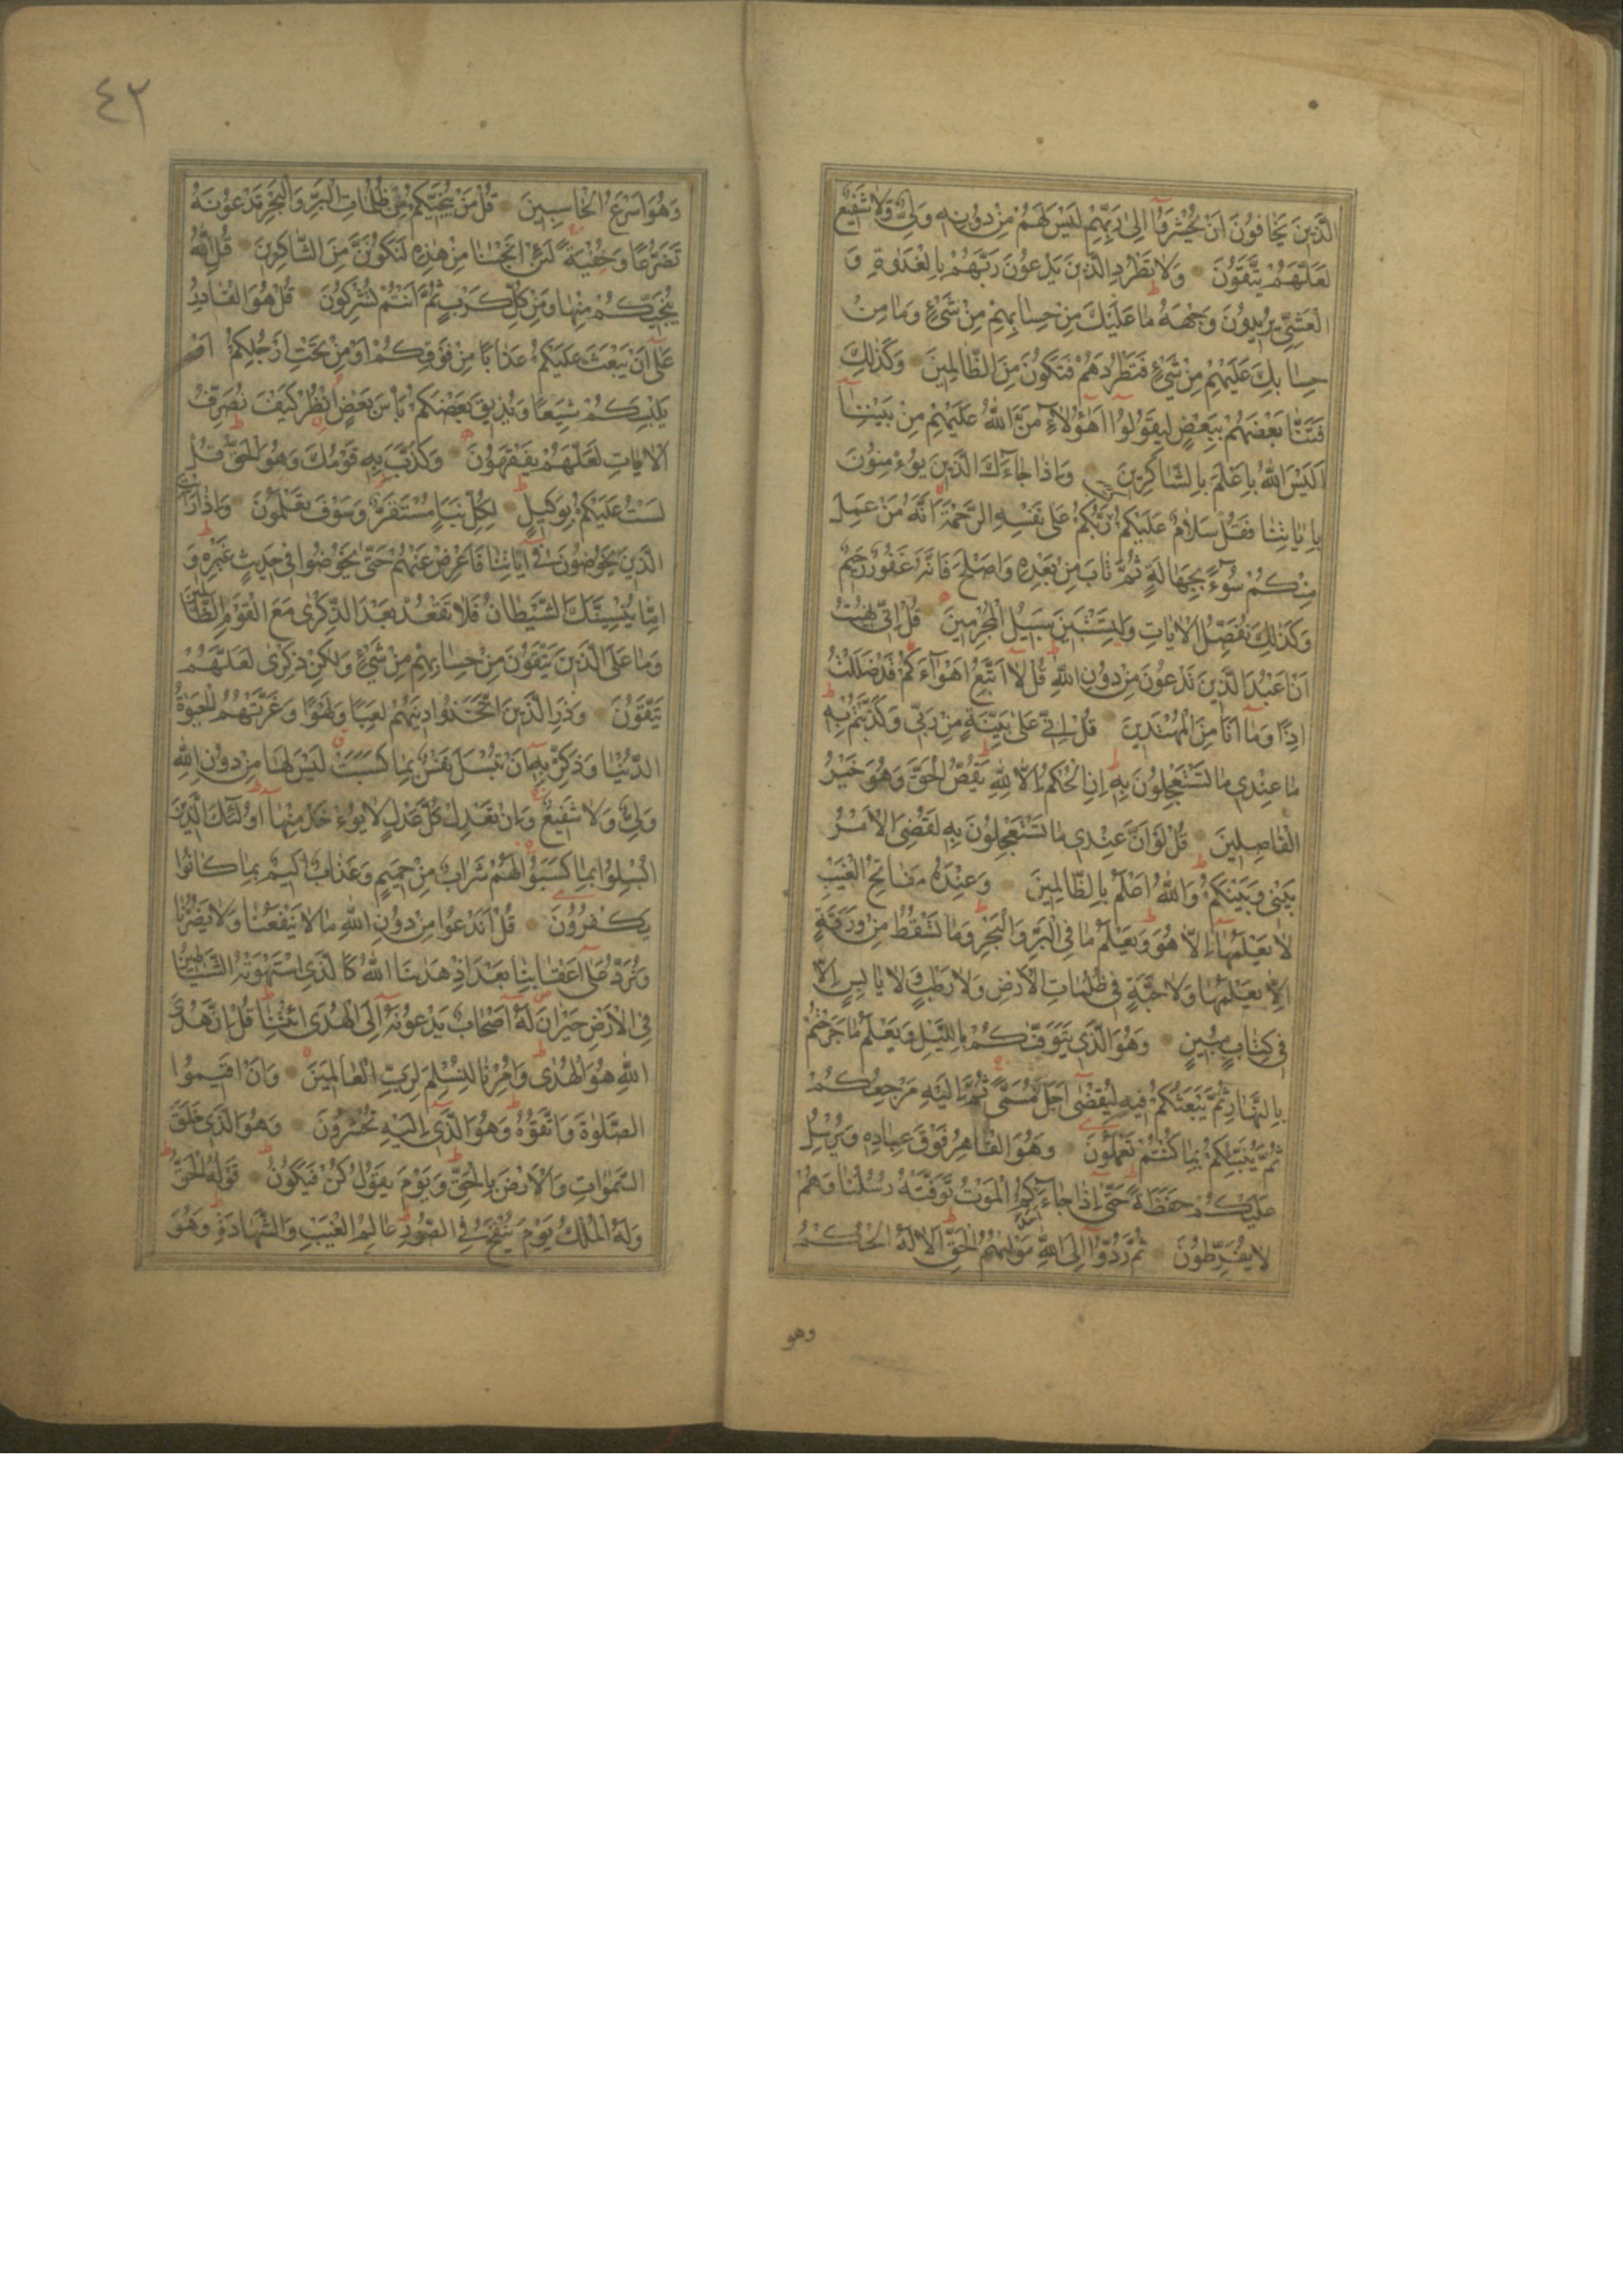 الَّذينَ يَخافُونَ اَنْ يُحْشَرُوا اِلى رَبِّهِمْ لَيْسَ لَهُمْ مِنْ دُونِهِ وَلِىٌّ وَلا شَفيعٌ
لَعَلَّهُمْ يَتَّقُونَ وَلا تَطْرُدِ الَّذينَ يَدْعُونَ رَبَّهُمْ بِالْغَدٰوةِ وَ
الْعَشِىِّ يُريدُونَ وَجْهَهُ ما عَلَيْكَ مِنْ حِسابِهِمْ مِنْ شَىْءٍ وَما مِنْ
حِسابِكَ عَلَيْهِمْ مِنْ شَىْءٍ فَتَطْرُدَهُمْ فَتَكُونَ مِنَ الظّالِمينَ وَكَذٰلِكَ
فَتَنّا بَعْضَهُمْ بِبَعْضٍ لِيَقُولُوا اَهٰؤُلاءِ مَنَّ اللّٰهُ عَلَيْهِمْ مِنْ بَيْنِنا
اَلَيْسَ اللّٰهُ بِاَعْلَمَ بِالشّاكِرينَ وَاِذا جاءَكَ الَّذينَ يُؤْمِنُونَ
بِاٰياتِنا فَقُلْ سَلامٌ عَلَيْكُمْ كَتَبَ رَبُّكُمْ عَلى نَفْسِهِ الرَّحْمَةَ اَنَّهُ مَنْ عَمِلَ
مِنْكُمْ سُوءً بِجَهالَةٍ ثُمَّ تابَ مِنْ بَعْدِهِ وَاَصْلَحَ فَاَنَّهُ غَفُورٌ رَحيمٌ
وَكَذٰلِكَ نُفَصِّلُ الْاٰياتِ وَلِتَسْتَبينَ سَبيلُ الْمُجْرِمينَ قُلْ اِنّى نُهيتُ
اَنْ اَعْبُدَ الَّذينَ تَدْعُونَ مِنْ دُونِ اللّٰهِ قُلْ لا اَتَّبِعُ اَهْواءَكُمْ قَدْ ضَلَلْتُ
اِذًا وَما اَنَا مِنَ الْمُهْتَدينَ قُلْ اِنّى عَلى بَيِّنَةٍ مِنْ رَبّى وَكَذَّبْتُمْ بِهِ
ما عِنْدى ما تَسْتَعْجِلُونَ بِهِ اِنِ الْحُكْمُ اِلّا لِلّٰهِ يَقُصُّ الْحَقَّ وَهُوَ خَيْرُ
الْفاصِلينَ قُلْ لَوْ اَنَّ عِنْدى ما تَسْتَعْجِلُونَ بِهِ لَقُضِىَ الْاَمْرُ
بَيْنى وَبَيْنَكُمْ وَاللّٰهُ اَعْلَمُ بِالظّالِمينَ وَعِنْدَهُ مَفاتِحُ الْغَيْبِ
لا يَعْلَمُها اِلّا هُوَ وَيَعْلَمُ ما فِى الْبَرِّ وَالْبَحْرِ وَما تَسْقُطُ مِنْ وَرَقَةٍ
اِلّا يَعْلَمُها وَلا حَبَّةٍ فى ظُلُماتِ الْاَرْضِ وَلا رَطْبٍ وَلا يابِسٍ اِلّا
فى كِتابٍ مُبينٍ وَهُوَ الَّذى يَتَوَفّٰيكُمْ بِاللَّيْلِ وَيَعْلَمُ ما جَرَحْتُمْ
بِالنَّهارِ ثُمَّ يَبْعَثُكُمْ فيهِ لِيُقْضٰى اَجَلٌ مُسَمًّى ثُمَّ اِلَيْهِ مَرْجِعُكُمْ
ثُمَّ يُنَبِّئُكُمْ بِما كُنْتُمْ تَعْمَلُونَ وَهُوَ الْقاهِرُ فَوْقَ عِبادِهِ وَيُرْسِلُ
عَلَيْكُمْ حَفَظَةً حَتّى اِذا جاءَ اَحَدَكُمُ الْمَوْتُ تَوَفَّتْهُ رُسُلُنا وَهُمْ
لا يُفَرِّطُونَ ثُمَّ رُدُّوا اِلَى اللّٰهِ مَوْلٰيهُمُ الْحَقِّ اَلا لَهُ الْحُكْمُ
وهو
٤٢
وَهُوَ اَسْرَعُ الْحاسِبينَ قُلْ مَنْ يُنَجّيكُمْ مِنْ ظُلُماتِ الْبَرِّ وَالْبَحْرِ تَدْعُونَهُ
تَضَرُّعًا وَخُفْيَةً لَئِنْ اَنْجَيْنا مِنْ هٰذِهِ لَنَكُونَنَّ مِنَ الشّاكِرينَ قُلِ اللّٰهُ
يُنَجّيكُمْ مِنْها وَمِنْ كُلِّ كَرْبٍ ثُمَّ اَنْتُمْ تُشْرِكُونَ قُلْ هُوَ الْقادِرُ
عَلى اَنْ يَبْعَثَ عَلَيْكُمْ عَذابًا مِنْ فَوْقِكُمْ اَوْ مِنْ تَحْتِ اَرْجُلِكُمْ اَوْ
يَلْبِسَكُمْ شِيَعًا وَيُذيقَ بَعْضَكُمْ بَاْسَ بَعْضٍ اُنْظُرْ كَيْفَ نُصَرِّفُ
الْاٰياتِ لَعَلَّهُمْ يَفْقَهُونَ وَكَذَّبَ بِهِ قَوْمُكَ وَهُوَ الْحَقُّ قُلْ
لَسْتُ عَلَيْكُمْ بِوَكيلٍ لِكُلِّ نَبَاٍ مُسْتَقَرٌّ وَسَوْفَ تَعْلَمُونَ وَاِذا رَاَيْتَ
الَّذينَ يَخُوضُونَ فى اٰياتِنا فَاَعْرِضْ عَنْهُمْ حَتّى يَخُوضُوا فى حَديثٍ غَيْرِهِ وَ
اِمّا يُنْسِيَنَّكَ الشَّيْطانُ فَلا تَقْعُدْ بَعْدَ الذِّكْرٰى مَعَ الْقَوْمِ الظّالِمينَ
وَما عَلَى الَّذينَ يَتَّقُونَ مِنْ حِسابِهِمْ مِنْ شَىْءٍ وَلٰكِنْ ذِكْرٰى لَعَلَّهُمْ
يَتَّقُونَ وَذَرِ الَّذينَ اتَّخَذُوا دينَهُمْ لَعِبًا وَلَهْوًا وَغَرَّتْهُمُ الْحَيٰوةُ
الدُّنْيا وَذَكِّرْ بِهِ اَنْ تُبْسَلَ نَفْسٌ بِما كَسَبَتْ لَيْسَ لَها مِنْ دُونِ اللّٰهِ
وَلِىٌّ وَلا شَفيعٌ وَاِنْ تَعْدِلْ كُلَّ عَدْلٍ لا يُؤْخَذْ مِنْها اُولٰئِكَ الَّذينَ
اُبْسِلُوا بِما كَسَبُوا لَهُمْ شَرابٌ مِنْ حَميمٍ وَعَذابٌ اَليمٌ بِما كانُوا
يَكْفُرُونَ قُلْ اَنَدْعُوا مِنْ دُونِ اللّٰهِ ما لا يَنْفَعُنا وَلا يَضُرُّنا
وَنُرَدُّ عَلى اَعْقابِنا بَعْدَ اِذْ هَدٰينَا اللّٰهُ كَالَّذِى اسْتَهْوَتْهُ الشَّياطينُ
فِى الْاَرْضِ حَيْرانَ لَهُ اَصْحابٌ يَدْعُونَهُ اِلَى الْهُدَى ائْتِنا قُلْ اِنَّ هُدَى
اللّٰهِ هُوَ الْهُدٰى وَاُمِرْنا لِنُسْلِمَ لِرَبِّ الْعالَمينَ وَاَنْ اَقيمُوا
الصَّلٰوةَ وَاتَّقُوهُ وَهُوَ الَّذى اِلَيْهِ تُحْشَرُونَ وَهُوَ الَّذى خَلَقَ
السَّمٰواتِ وَالْاَرْضَ بِالْحَقِّ وَيَوْمَ يَقُولُ كُنْ فَيَكُونُ قَوْلُهُ الْحَقُّ
وَلَهُ الْمُلْكُ يَوْمَ يُنْفَخُ فِى الصُّورِ عالِمُ الْغَيْبِ وَالشَّهادَةِ وَهُوَ